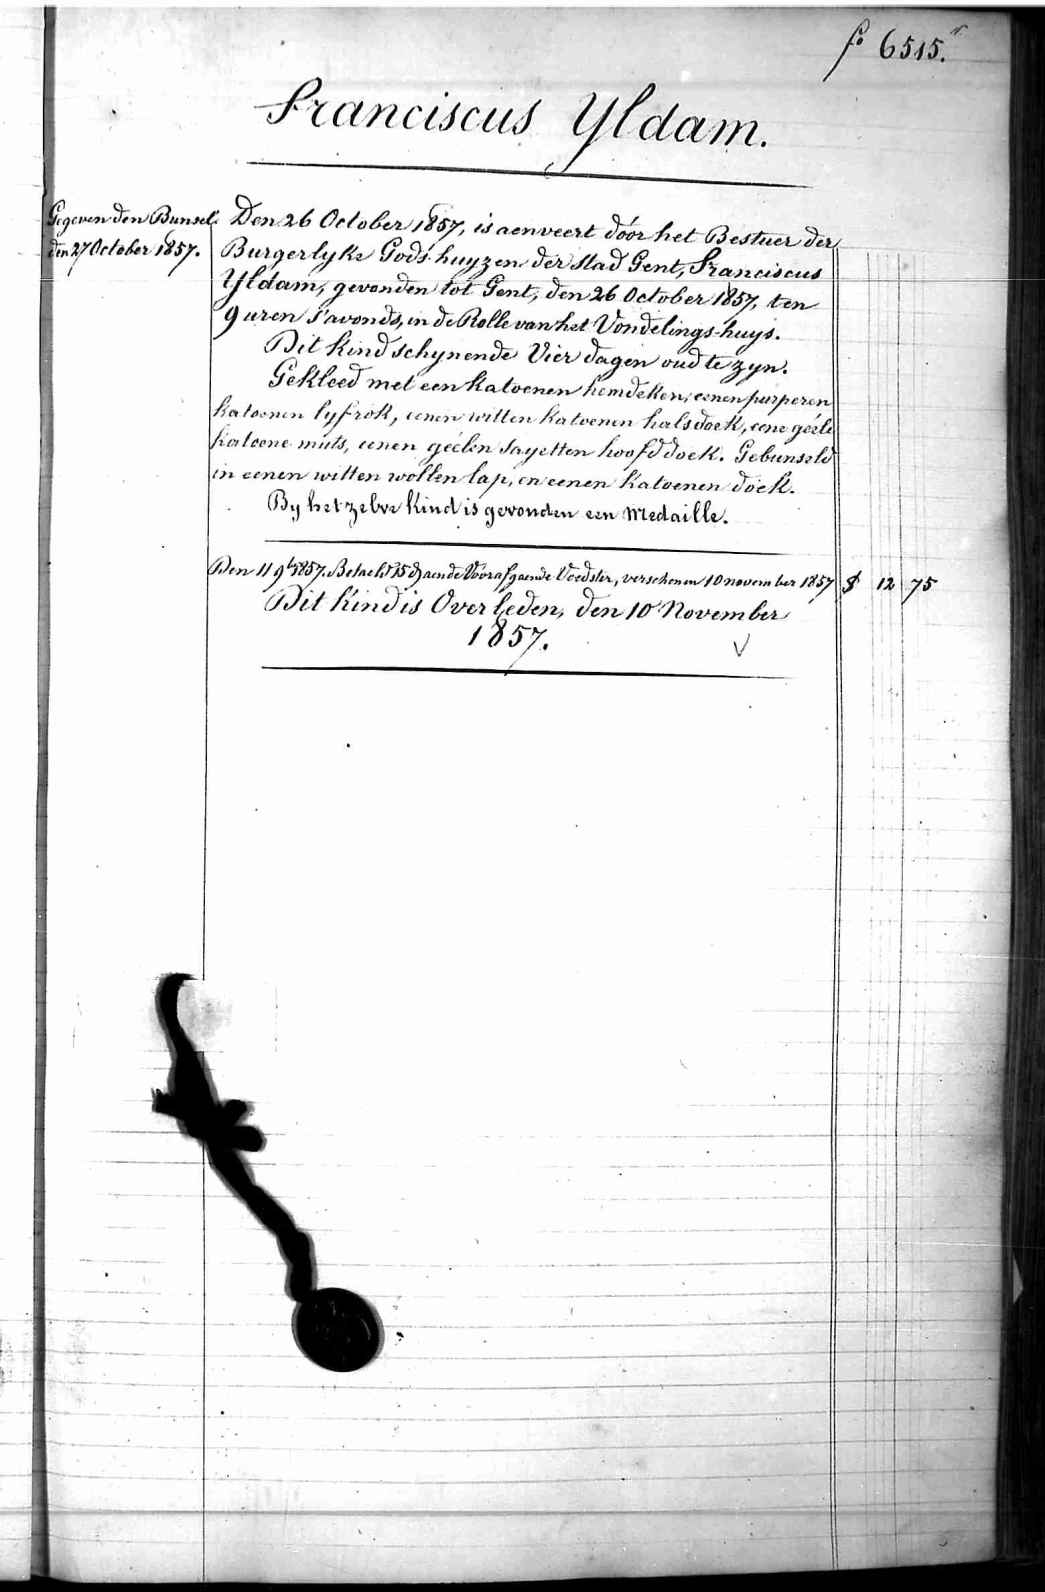 fo 6515.
Franciscus Yldam.
Gegeven den Bunsel
den 27 October 1857.
Den 26 October 1857, is aenveert door het Bestuer der
Burgerlyke Gods-huyzen der stad Gent, Franciscus
Yldam, gevonden tot Gent, den 26 October 1857, ten
9 uren s'avonds, in de Rolle van het Vondelings-huys.
Dit kind schynende Vier dagen oud te zyn.
Gekleed met een katoenen hemdeken, eenen purperen
katoenen lyfrok, eenen witten katoenen halsdoek, eene geéle
katoene muts, eenen geélen sayetten hoofddoek. Gebunseld
in eenen witten wollen lap, en eenen katoenen doek.
By het zelve kind is gevonden een Medaille.
Den 11 9b 1857. Betaeld 15 dagen de Voorafgaende Voedster, verschenen 10 november 1857 $ 12 75
Dit kind is Overleden, den 10 November
1857.